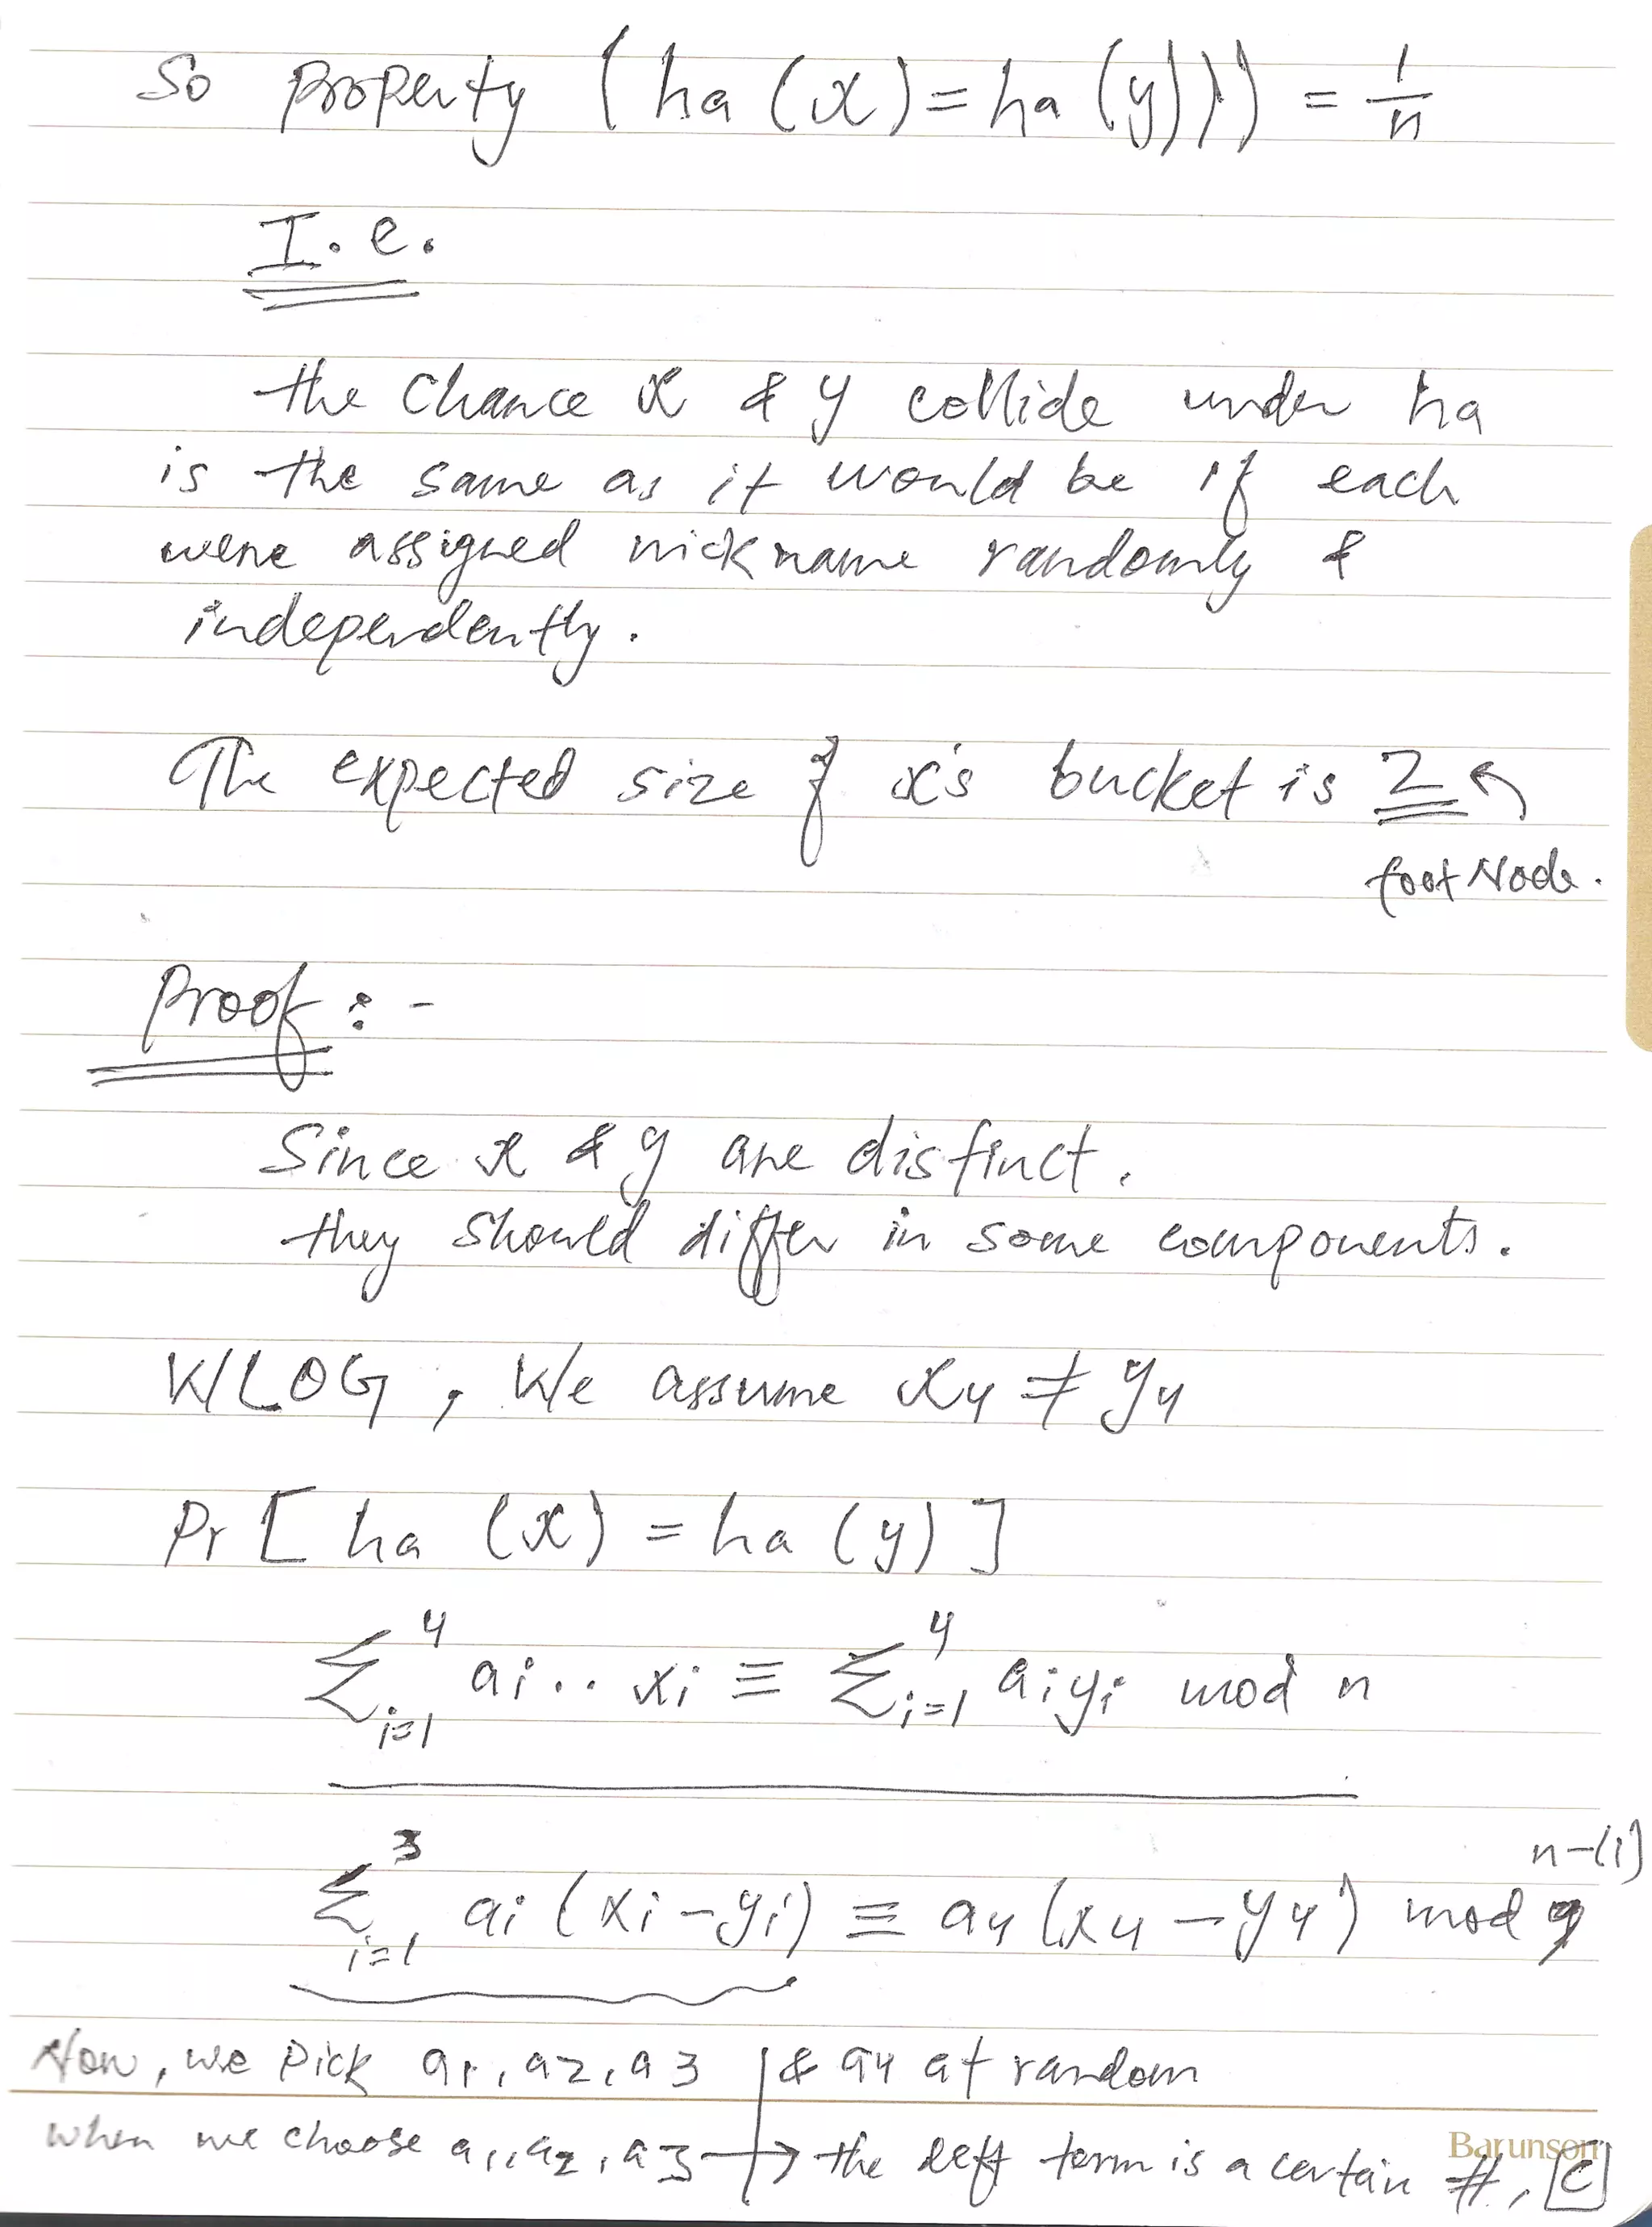 So Property (ha (x) = ha (y))) = 1/n
I.e.
the chance x & y collide under ha
is the same as it would be if each
were assigned nickname randomly &
independently.
The expected size of x's bucket is 2
foot Node.
Proof : -
Since x & y are distinct.
they should differ in some components.
WLOG, We assume x4 ≠ y4
Pr [ ha (x) = ha (y) ]
∑_{i=1}^{4} ai.. xi ≡ ∑_{i=1}^{4} aiyi mod n
∑_{i=1}^{3} ai (xi - yi) ≡ a4 (x4 - y4) mod n-(1)
Now, we pick a1, a2, a3 & a4 at random
when we choose a1, a2, a3 → the left term is a certain #, C
Barunson